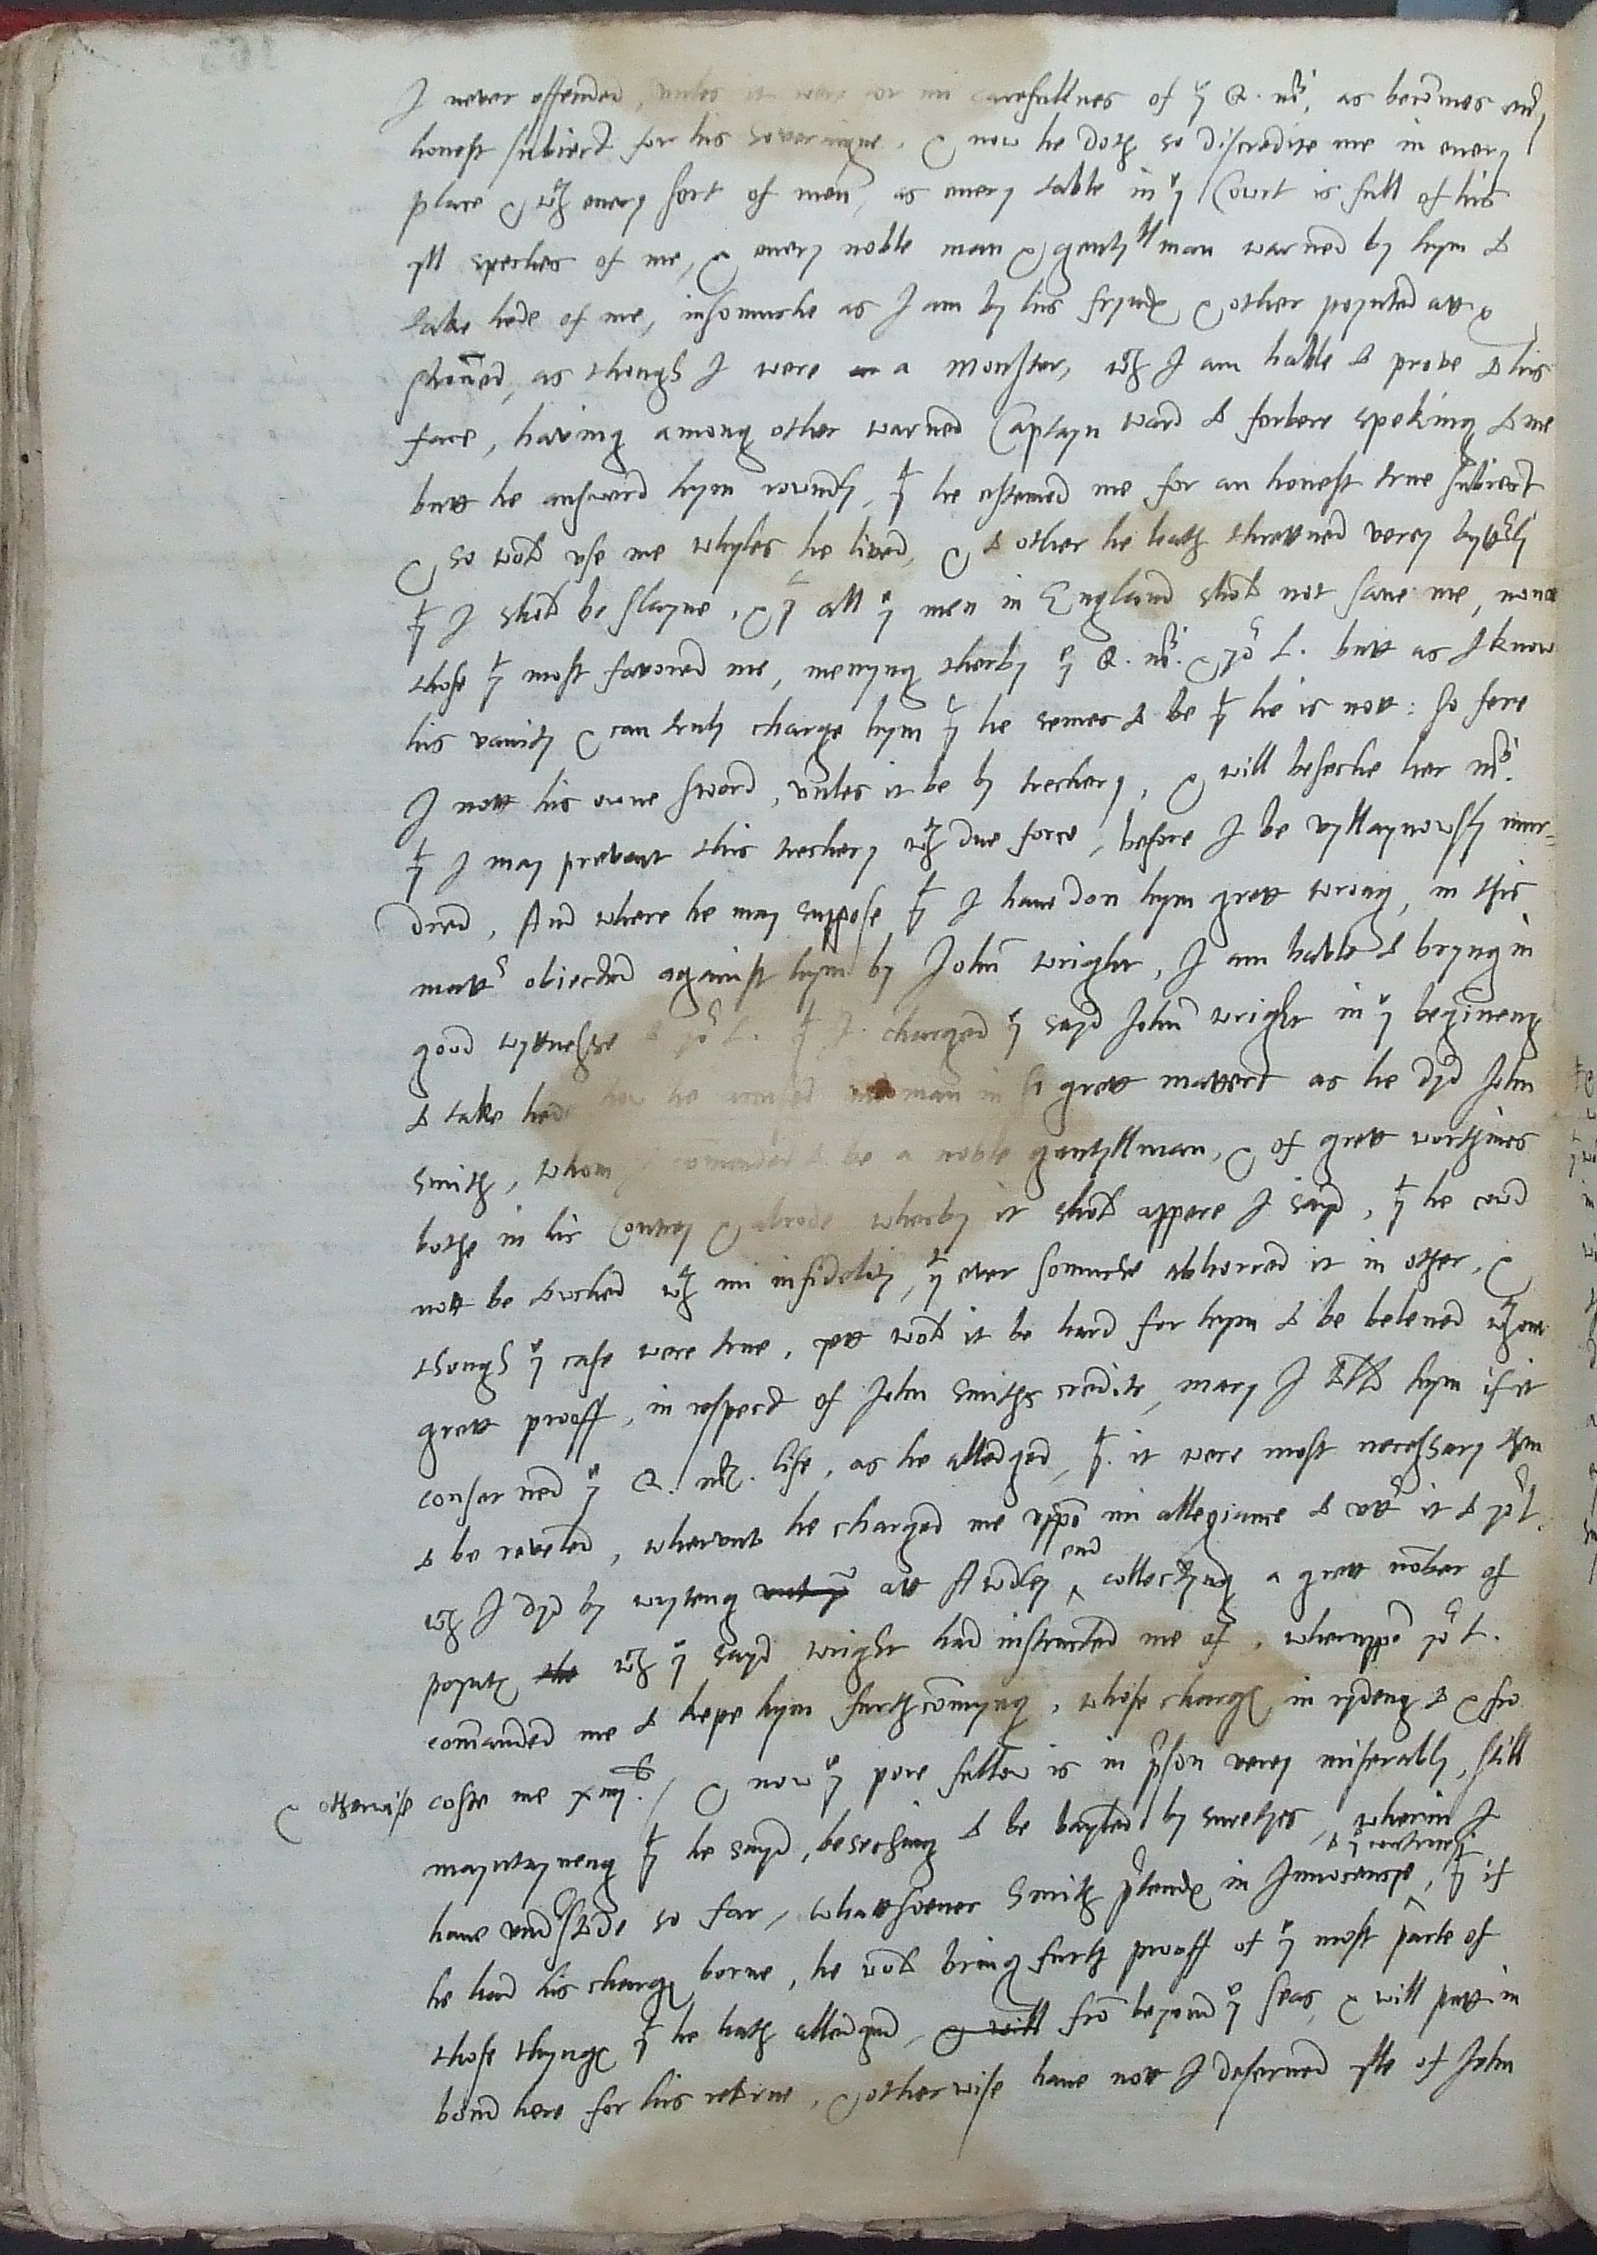 I never offended, unles it were ov̄ mi carefullnes of yͤ Q. maᵗⁱ, as becōmes eūy
honest subiect for his soveringne, & now he doth so discredite me in euery
place & wᵗʰ euery sort of men, as euery table in yͤ Court is full of his
yll speches of me, & euery noble man & gentyllman warned by hym to
take hede of me, insomuche as I am by his fryndꝭ & other poynted att &
shoñed, as though I were a monster, wᶜʰ I am hable to prove to his
face, having among other warned Captayn ward to forbere speking to me
butt he answerd hym rowndly, yᵗ he estemed me for an honest true subiect
& so wold vse me whyles he lived, & to other he hath thretned verey byttʳly
yᵗ I shold be slayne, & yᵗ all yͤ men in England shold not save me, none
those yᵗ most favored me, menyng therby yͤ Q. maᵗⁱ. & yoʳ L. butt as I know
his vanity & can truly charge hym yᵗ he semes to be yᵗ he is nott: so fere
I nott his owne sword, vnles it be by trechery, & will beseche her maᵗⁱ.
yᵗ I may prevent this trechery wᵗʰ due force, before I be vyllaynowsly mur-
dred, And where he may suppose yᵗ I haue don hym grett wrong, in this
mattʳ obiected against hym by John wright, I am hable to bryng in
good wyttnesse to yoʳ L. yᵗ I charged yͤ sayd John wright in yͤ begineng
to take hede how he acused man in so grett matters as he dyd John
Smith, whom I comended to be a noble gentyllman, & of grett worthines
bothe in his Contrey & abrode wherby it shold appere I sayd, yᵗ he cowd
nott be towched wᵗʰ mi infidelity, yᵗ ever somuche abhorred it in other, &
though yͤ case were true, yett wold it be hard for hym to be beleued wᵗʰout
grett prooff, in respect of John Smiths credite, mary I told hym if it
conserned yͤ Q. maᵗⁱˢ. life, as he alledged, yᵗ. it were most necessary then
to be reveled, whervnto he charged me vppō mi allegiance to vttʳ it to yoʳ L.
wᶜʰ I dyd by wryteng att Awdley end collectyng a grett nōber of
poyntꝭ wᶜʰ yͤ sayd wright had instructed me of, wheruppō yoʳ L.
comānded me to kepe hym furthcōmyng, whose chargꝭ in rydeng to & fro
& otherwise coste me xiiijˡⁱ. / & now yͤ pore fellow is in p̄son verey miserably, still
mayntayneng yᵗ he sayd, beseching to be bayled by suretyes, wherin I
to yͤ contrary
haue vndʳstode so far, whattsoeuer Smith p̄tendꝭ in Innocensye, yᵗ if
he had his chargꝭ borne, he wold bring furth prooff of yͤ most parte of
those thyngꝭ yᵗ he hath alledged, & will frō beyond yͤ seas, & will putt in
bond here for his retorne, & otherwise haue nott I deserued ylle of John